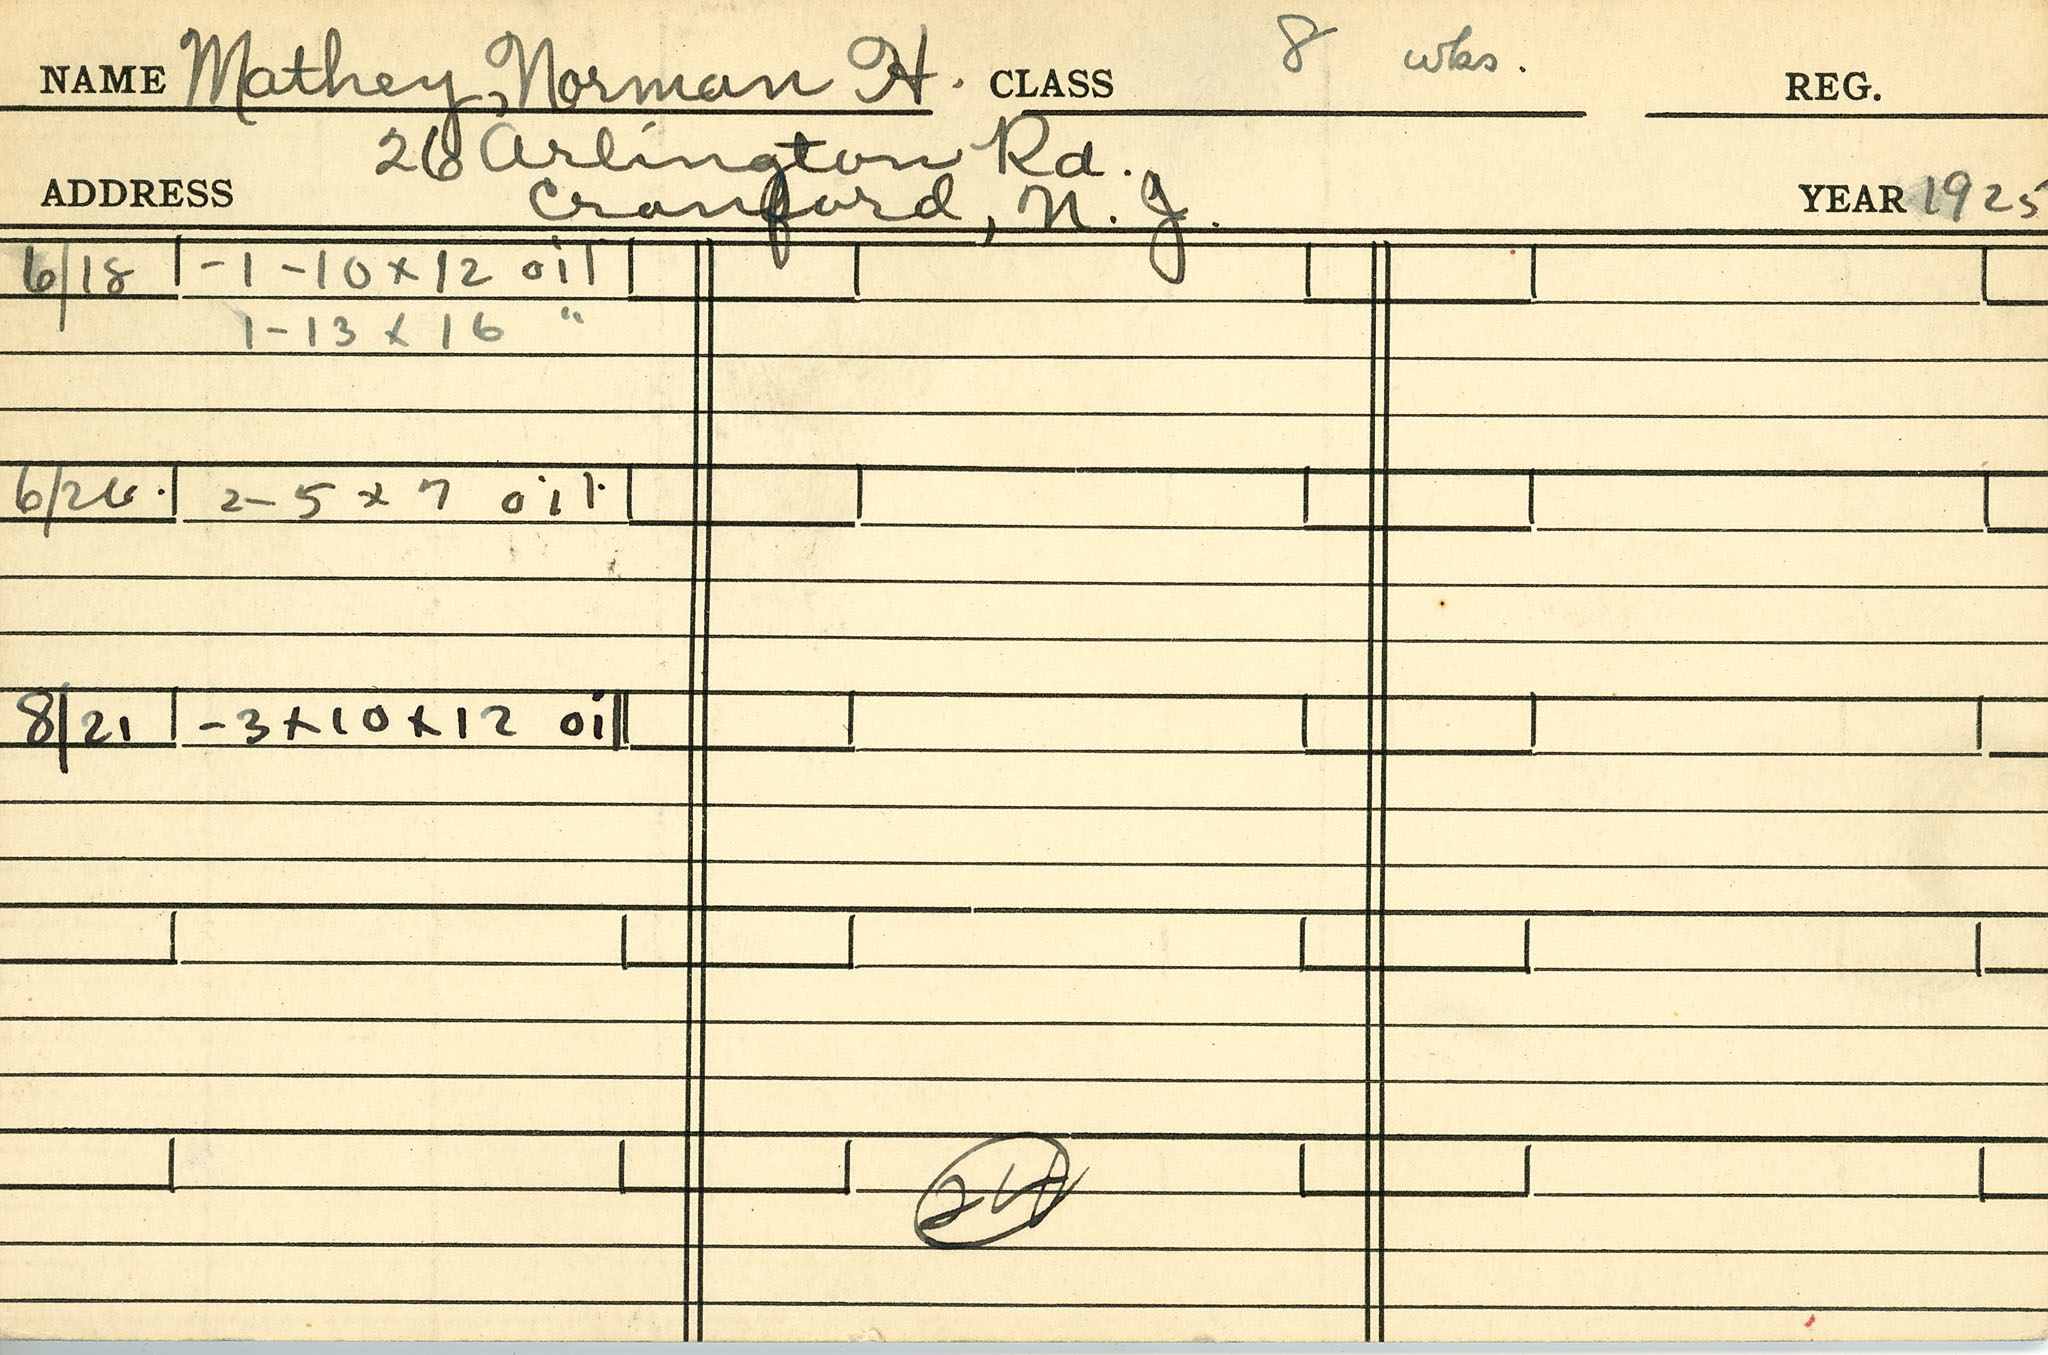 NAME Mathey, Norman H. CLASS 8 wks. REG.
26 Arlington Rd.
ADDRESS Cranford, N. J. YEAR 1925
6/18 -1-10x12 oil
1-13x16 "
6/26. 2-5x7 oil
8/21 -3x10x12 oil
24